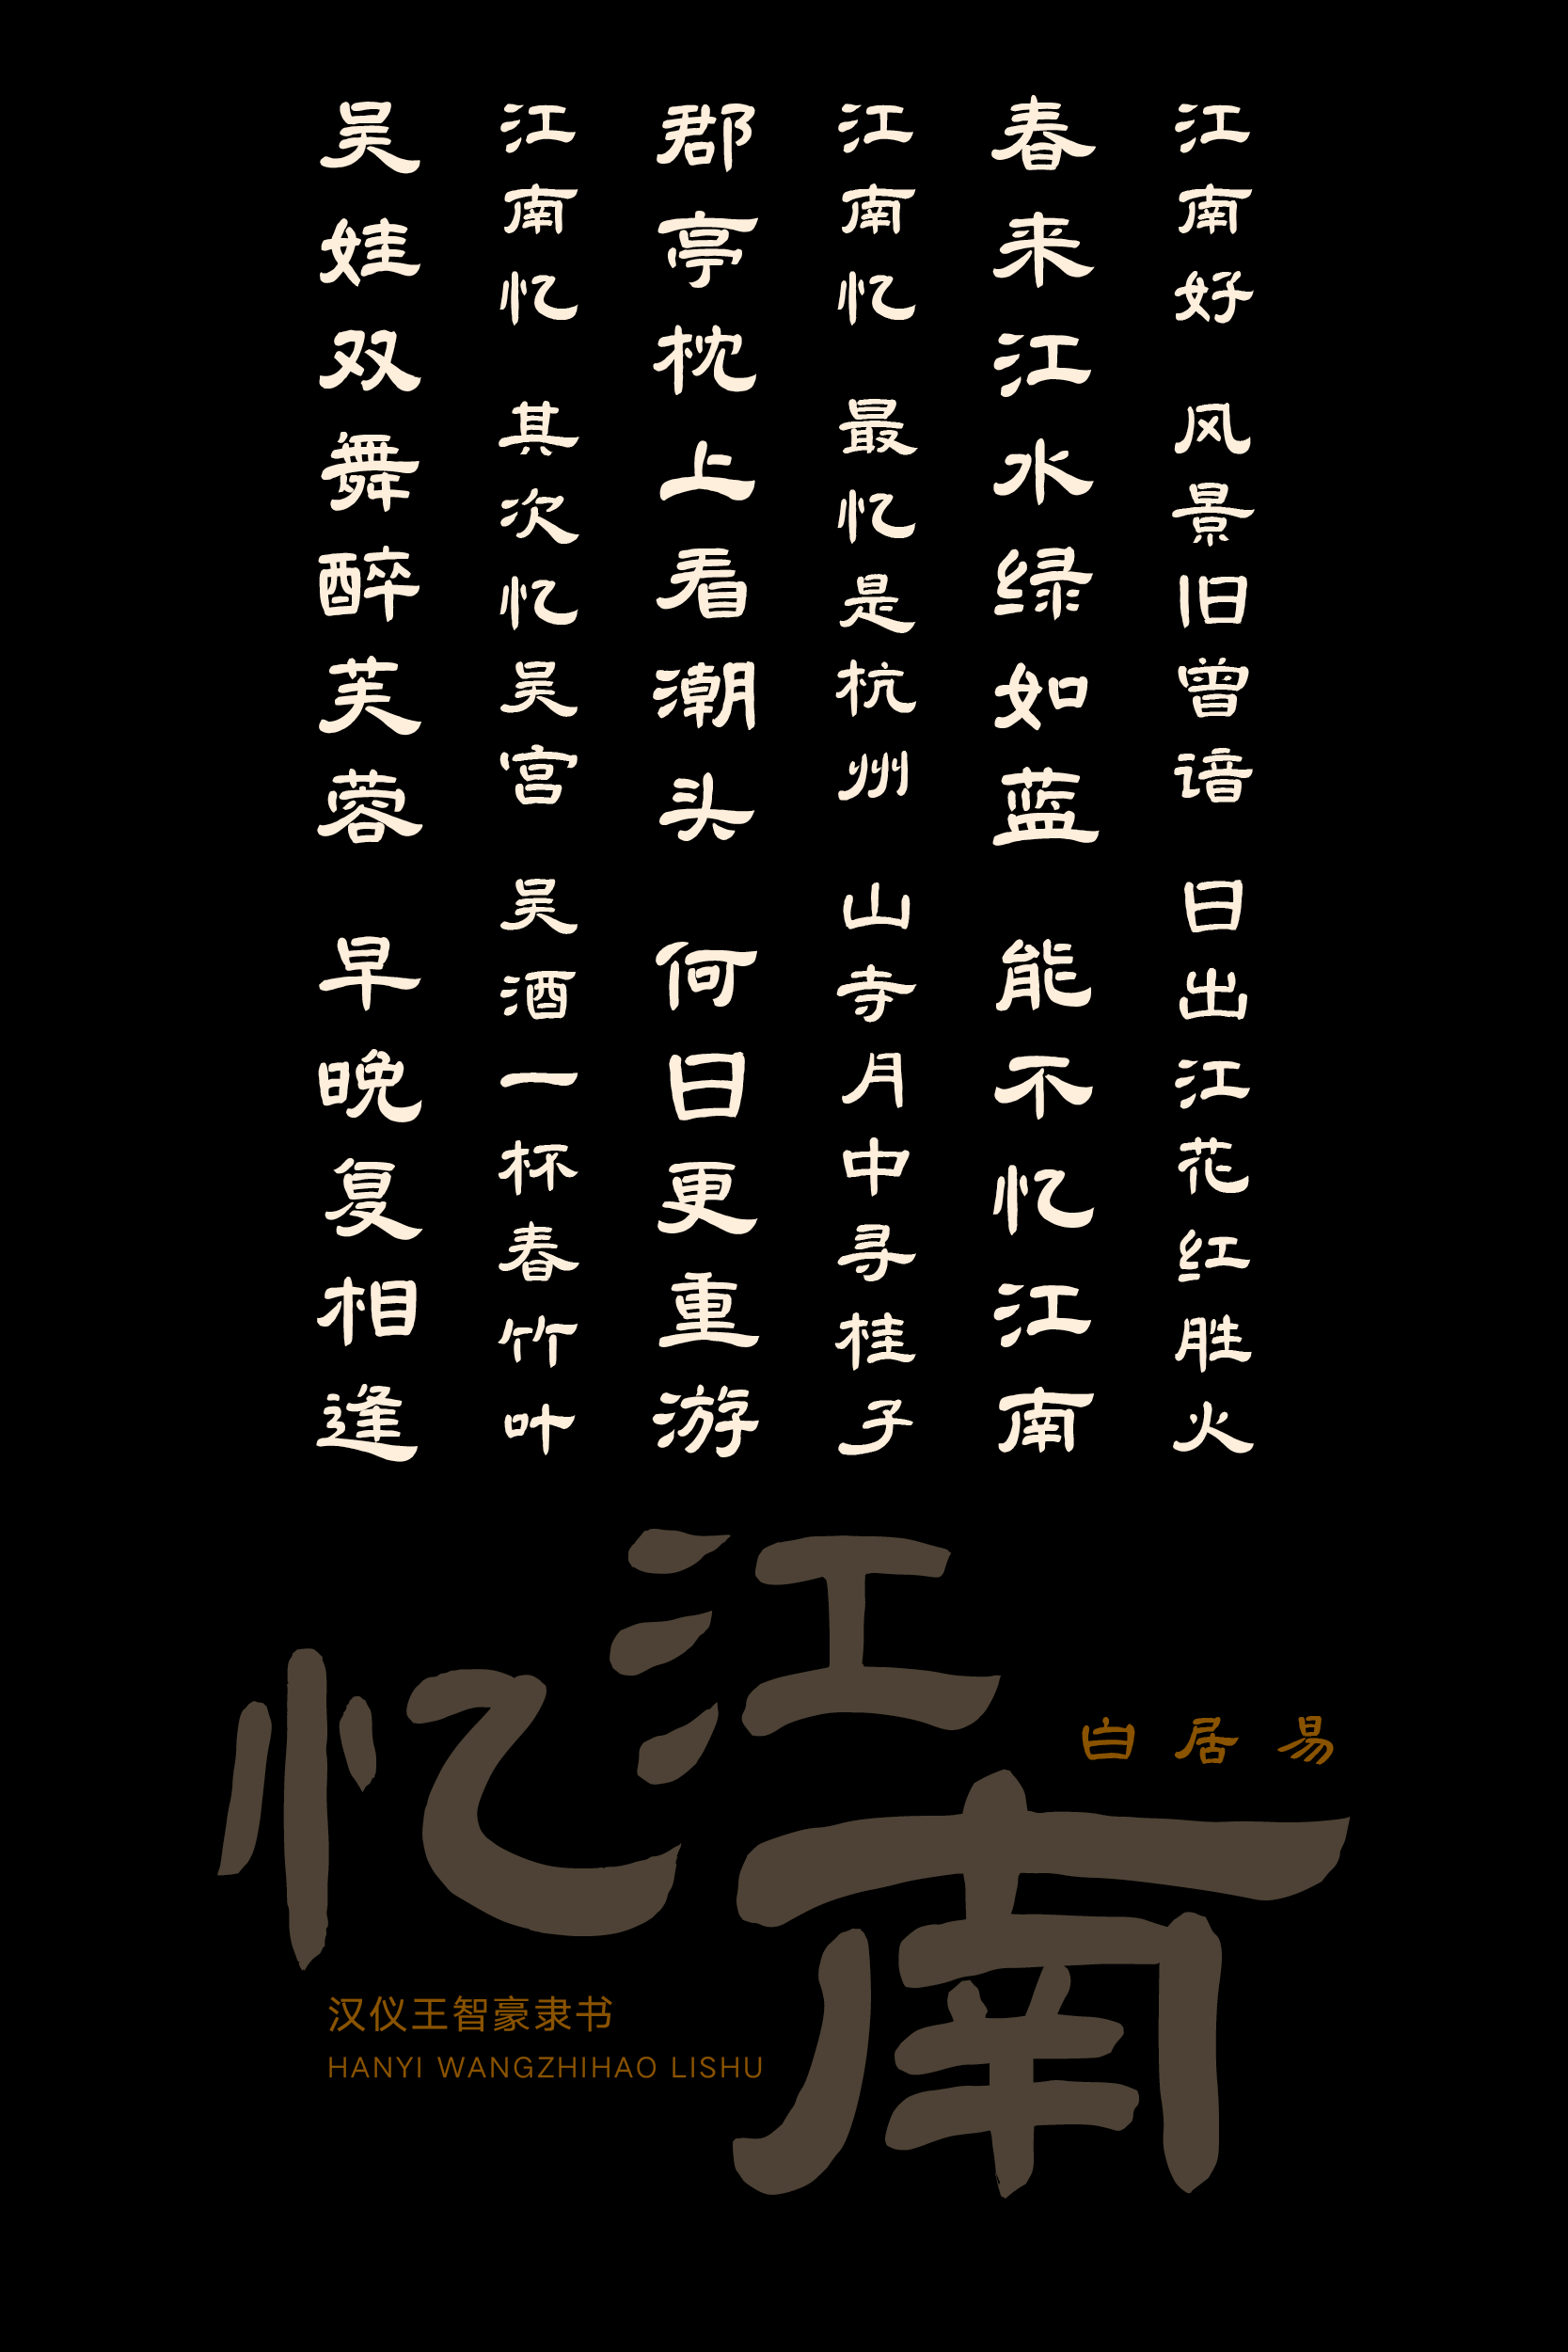 江南好 风景旧曾谙 日出江花红胜火
春来江水绿如蓝 能不忆江南
江南忆 最忆是杭州 山寺月中寻桂子
郡亭枕上看潮头 何日更重游
江南忆 其次忆吴宫 吴酒一杯春竹叶
吴娃双舞醉芙蓉 早晚复相逢
忆江南
白居易
汉仪王智豪隶书
HANYI WANGZHIHAO LISHU